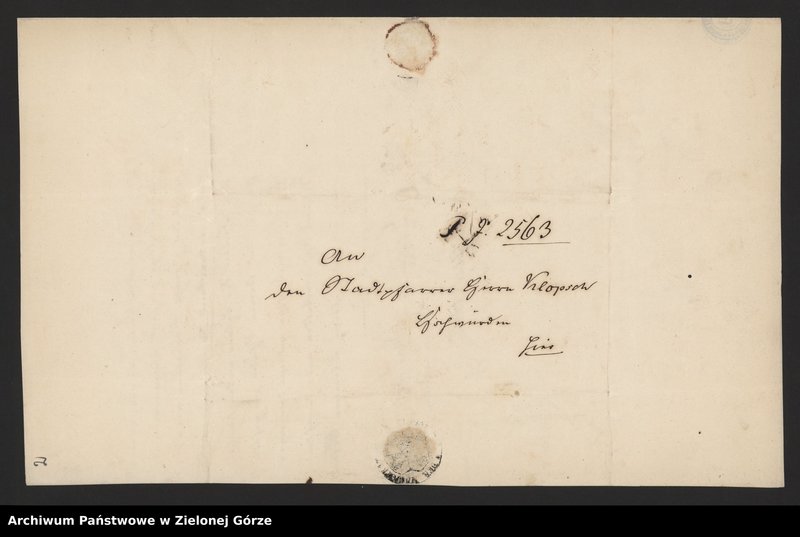 P. J. 2563
An
den Stadtpfarrer Herrn Klopsch
Hochwürden
hier
Archiwum Państwowe w Zielonej Górze